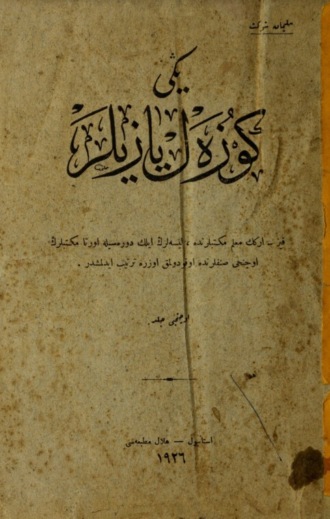 يكى
كوزه‌ل يازيلر
قيز، اركك معلم مكتبلرنده، ليسه‌لرڭ ايلك دوره‌سيله اورتا مكتبلرڭ
اوچنجى صنفلرنده اوقودولمق اوزره ترتيب ايدلمشدر .
اوچنجى جلد
استانبول — هلال مطبعه‌سى
١٩٢٦